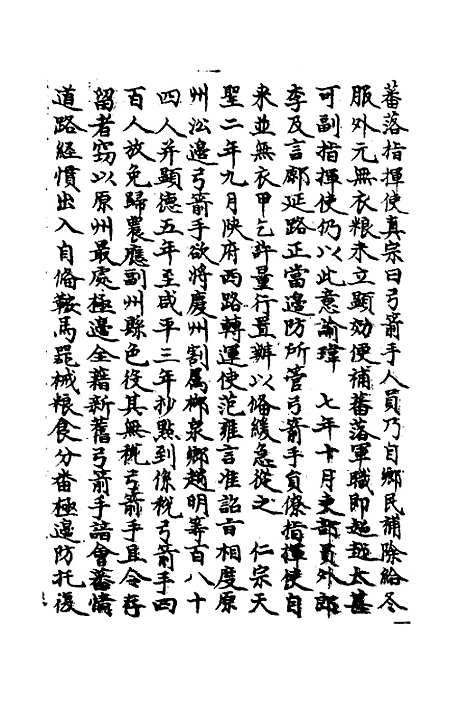 蕃落指揮使真宗曰弓箭手人員乃自鄉民補除給冬
服外元無衣粮未立顯効便補蕃落軍職即超越太甚
可副指揮使仍以此意諭瑋　七年十月吏部員外郎
李及言鄜延路正當邊防所管弓箭手負僚指揮使自
来並無衣甲乞許量行置辦以俻緩急從之　仁宗天
聖二年九月陝府西路轉運使范雍言准詔㫖相度原
州㳂邊弓箭手欲將慶州割属栁泉鄉趙明等百八十
四人并顯德五年至咸平三年抄點到係稅弓箭手四
百人放免歸農應副州縣色役其無稅弓箭手且令存
留者竊以原州最處極邊全藉新舊弓箭手諳會蕃情
道路経慣出入自俻鞍馬噐械粮食分畨極邊防托復